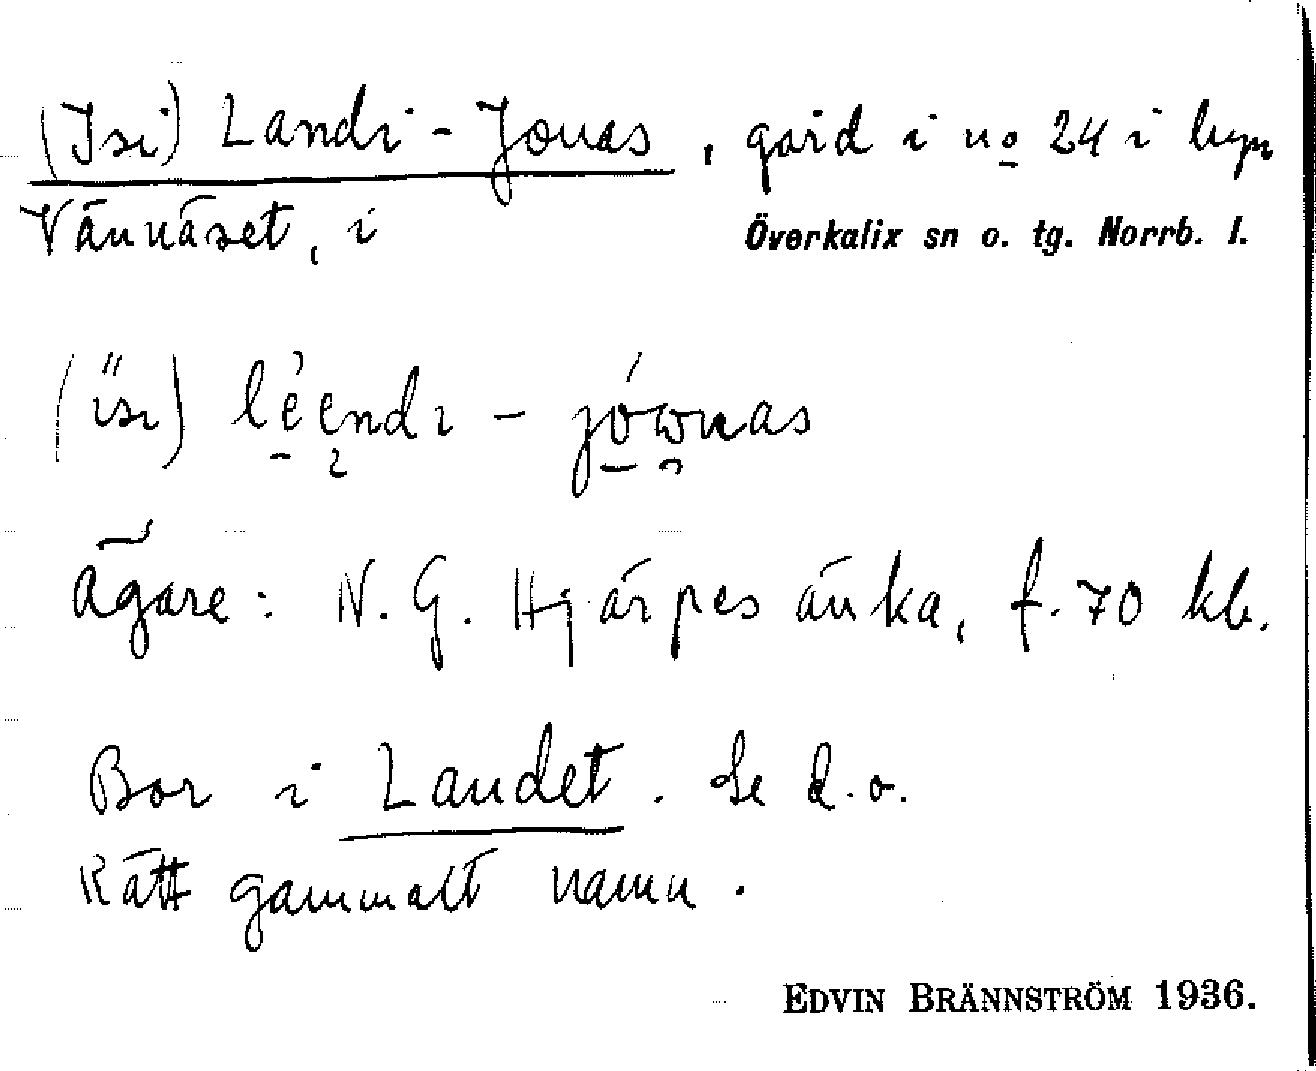 (Isi) Landi-Jonas, gård i no 24 i byn
Vännäset, i Överkalix sn o. tg. Norrb. l.
(ı̋sı) léendı - jównas
Ägare: N. G. Hjärpes änka, f. 70 kb.
Bor i Landet. Se d.o.
Rätt gammalt namn.
EDVIN BRÄNNSTRÖM 1936.